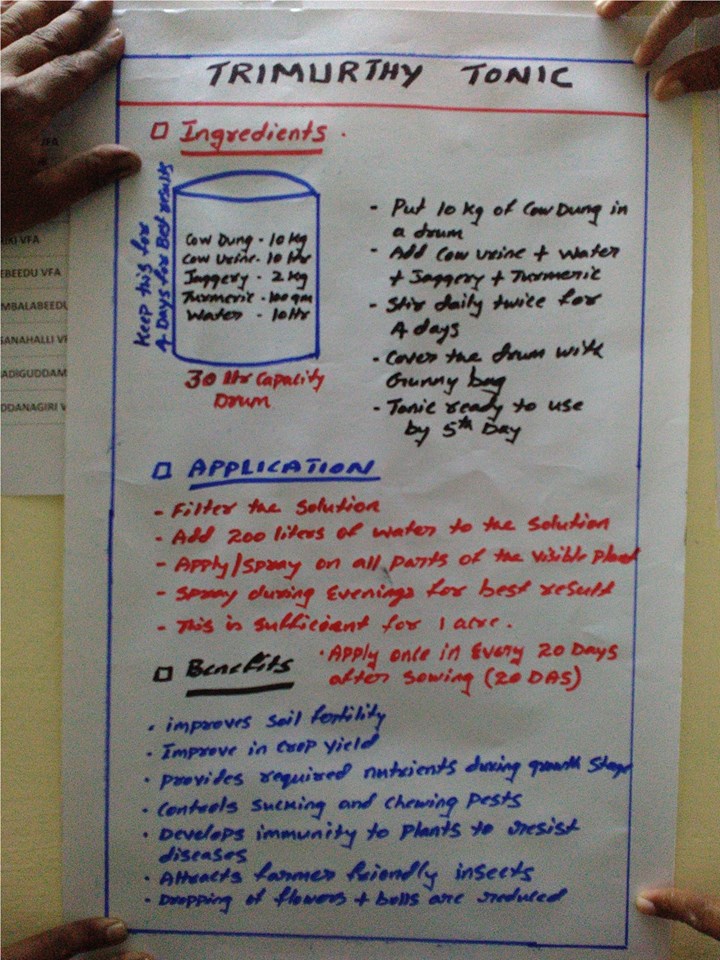 TRIMURTHY TONIC
□ Ingredients.
Keep this for
4 Days for Best results
Cow Dung - 10 Kg
Cow Urine - 10 ltr
Jaggery - 2 Kg
Turmeric - 100 gm
Water - 10 ltr
30 ltr Capacity
Drum
- Put 10 kg of Cow Dung in
a drum
- Add Cow urine + Water
+ Jaggery + Turmeric
- Stir daily twice for
4 days
- Cover the drum with
Gunny bag
- Tonic ready to use
by 5th Day
□ APPLICATION
- Filter the Solution
- Add 200 liters of water to the solution
- Apply/spray on all parts of the visible plant
- Spray during Evenings for best result
- This is sufficient for 1 acre.
• Apply once in Every 20 Days
after sowing (20 DAS)
□ Benefits
• improves soil fertility
• Improve in crop yield
• provides required nutrients during growth stage
• Controls sucking and chewing pests
• Develops immunity to plants to resist
diseases
• Attracts farmer friendly insects
• Dropping of flowers + bolls are reduced
IFA
IKI VFA
EBEEDU VFA
MBALABEEDU
SANAHALLI VF
ADIGUDDAM
DDANAGIRI V